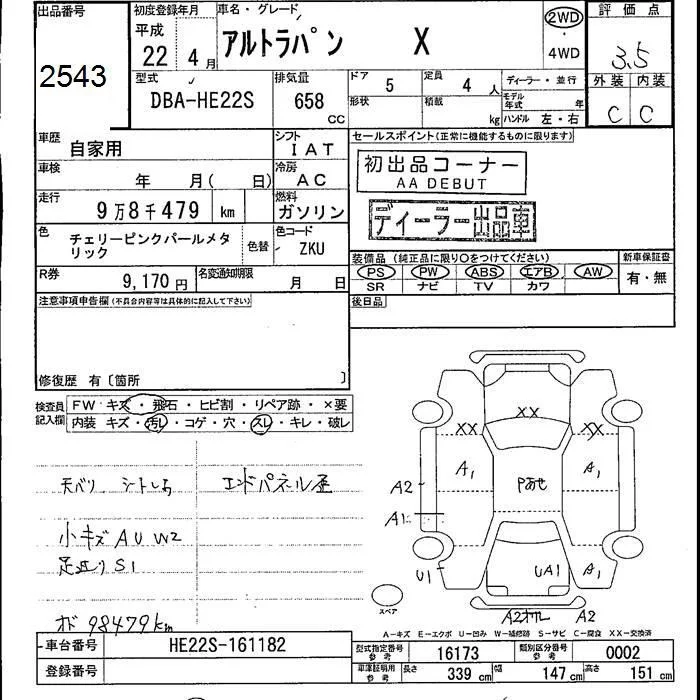 出品番号
2543
初度登録年月
平成
22 4月
車名・グレード
アルトラパン X
2WD
4WD
評価点
3.5
外装 内装
C C
型式
DBA-HE22S
排気量
658 CC
ドア 5
定員 4 人
ディーラー・並行
形状
積載 kg
モデル年式 年
ハンドル 左・右
車歴 自家用
シフト IAT
車検 年 月( 日)
冷房 AC
走行 9万8千479 km
燃料 ガソリン
色 チェリーピンクパールメタリック
色替
色コード ZKU
R券 9,170円
名変通知期限 月 日
セールスポイント(正常に機能するものに限ります)
初出品コーナー
AA DEBUT
ディーラー出品車
装備品(純正品に限り○をつけてください)
PS PW ABS エアB AW
SR ナビ TV カワ
新車保証書
有・無
後日品
注意事項申告欄(不具合内容等は具体的に記入して下さい)
修復歴 有〔箇所 〕
検査員記入欄
FW キズ・飛石・ヒビ割・リペア跡・×要
内装 キズ・汚レ・コゲ・穴・スレ・キレ・破レ
天バリ シートしみ エンドパネル歪
小キズ AU W2
足廻りS1
オド 98479km
XX
XX XX
A1 A1
Pあせ
A2
A1
U1
UA1 A1
A2オール A2
スペア
A—キズ E—エクボ U—凹み W—補修跡 S—サビ C—腐食 XX—交換済
車台番号 HE22S-161182
登録番号
型式指定番号 参考 16173
類別区分番号 参考 0002
車庫証明用 参考 長さ 339 cm 幅 147 cm 高さ 151 cm